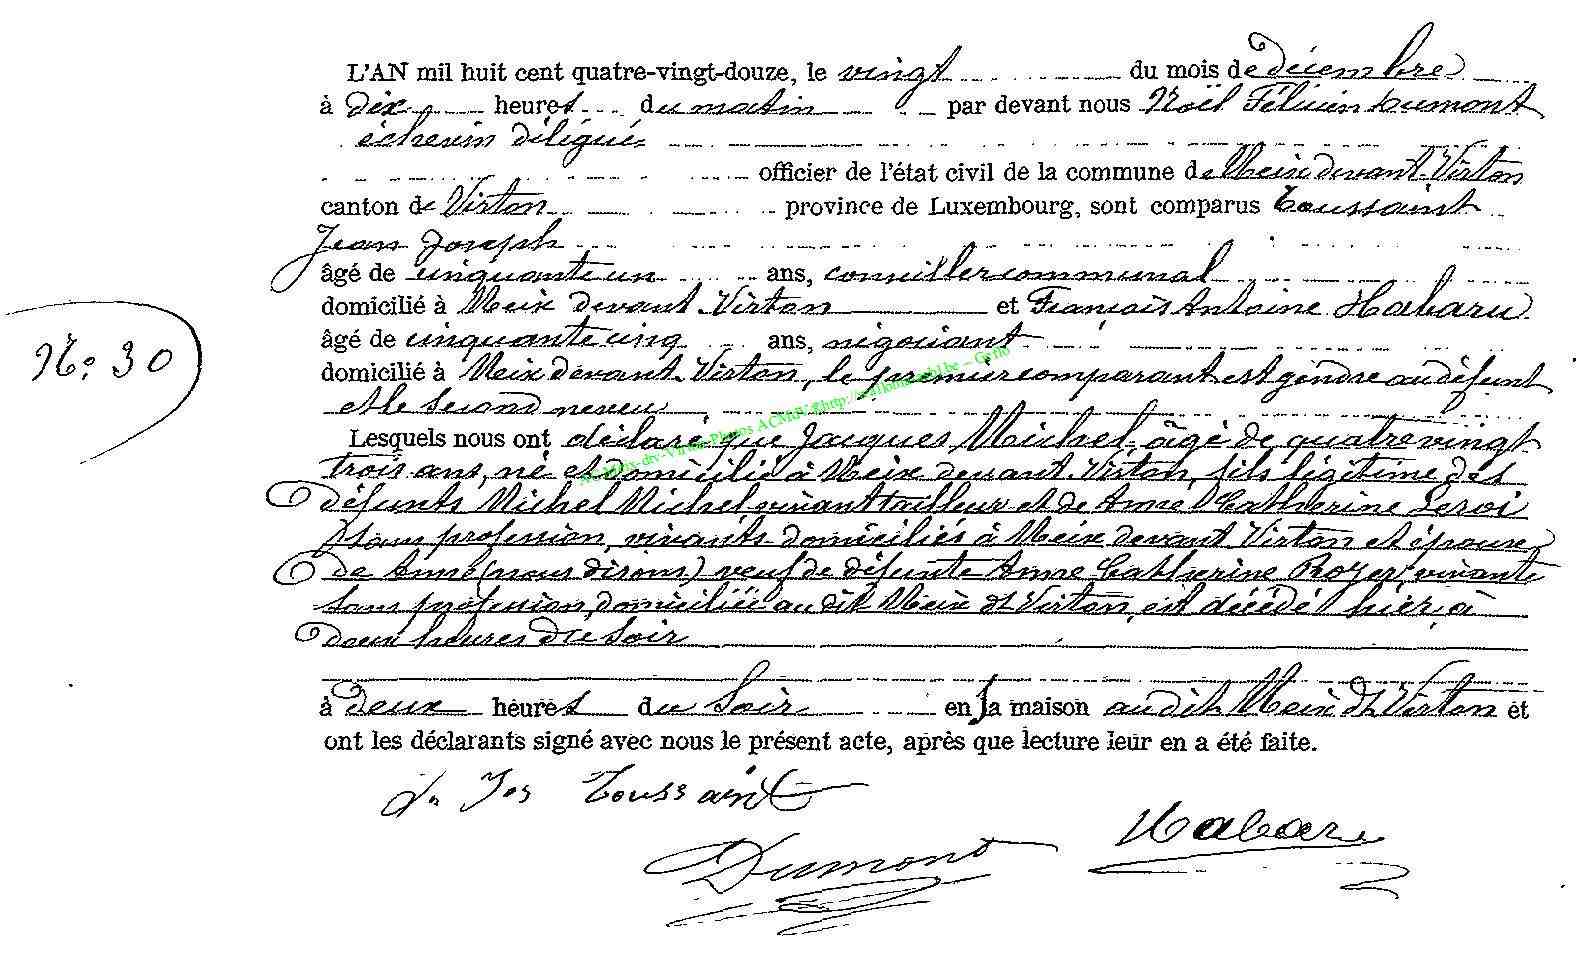 L'AN mil huit cent quatre-vingt-douze, le vingt du mois de décembre
à dix heures du matin par devant nous Noël Félicien Dumont
échevin délégué
officier de l'état civil de la commune de Meix devant Virton
canton de Virton province de Luxembourg, sont comparus Toussaint
Jean Joseph
âgé de cinquante un ans, conseiller communal
domicilié à Meix devant Virton et François Antoine Habaru
N° 30
âgé de cinquante cinq ans, négociant
domicilié à Meix devant Virton, le premier comparant est gendre au défunt
et le second neveu
Lesquels nous ont déclaré que Jacques Michel âgé de quatre vingt
trois ans, né et domicilié à Meix devant Virton, fils légitime des
défunts Michel Michel vivant tailleur et de Anne Catherine Leroi
sans profession, vivants domiciliés à Meix devant Virton et époux
de Anne (nous disons) veuf de défunte Anne Catherine Rozet, vivante
sans profession, domiciliée au dit Meix dt Virton, est décédé hier à
deux heures du soir
à deux heures du soir en sa maison audit Meix dt Virton et
ont les déclarants signé avec nous le présent acte, après que lecture leur en a été faite.
Jn Jos Toussaint
Habaru
Dumont